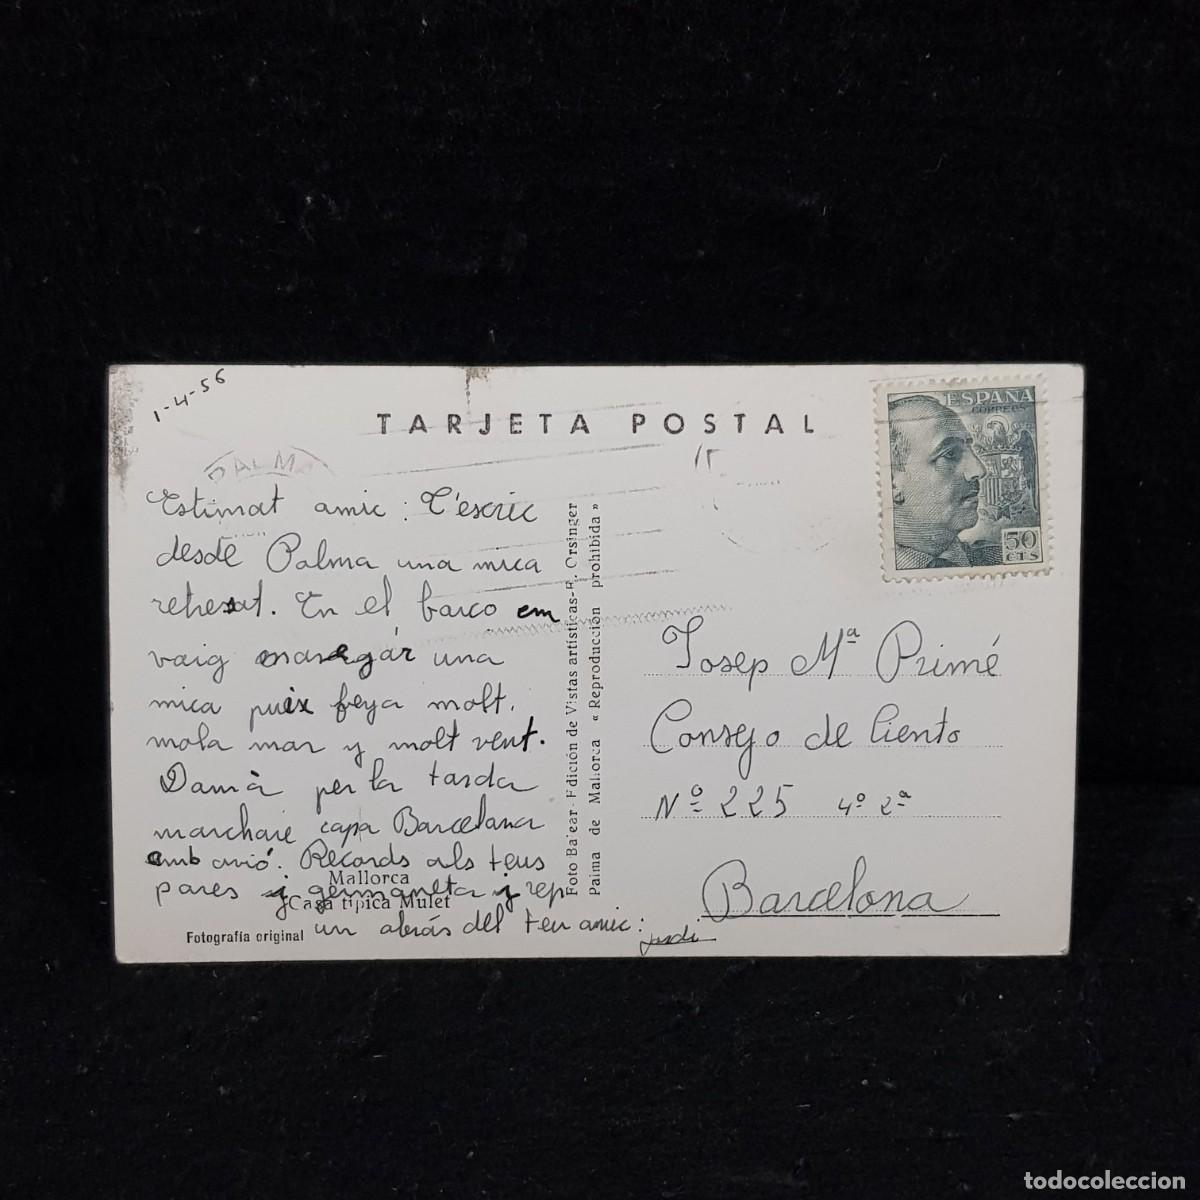 1-4-56
TARJETA POSTAL
PALM
ESPAÑA
CORREOS
50
CTS
Estimat amic: T'escric
desde Palma una mica
retresat. En el barco em
vaig maregár una
mica puix feya molt.
mola mar y molt vent.
Damà per la tarda
marchare capa Barcelona
amb avió. Records als teus
pares y germaneta y rep
un abrás del teu amic:
Mallorca
Casa típica Mulet
Fotografía original
Foto Balear-Edición de Vistas artísticas-R. Orsinger
Palma de Mallorca « Reproducción prohibida »
Josep Mª Primé
Consejo de Ciento
Nº 225 4º 2ª
Barcelona
todocoleccion